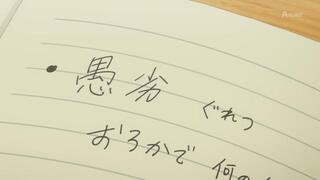 • 愚劣 ぐれつ
おろかで 何の